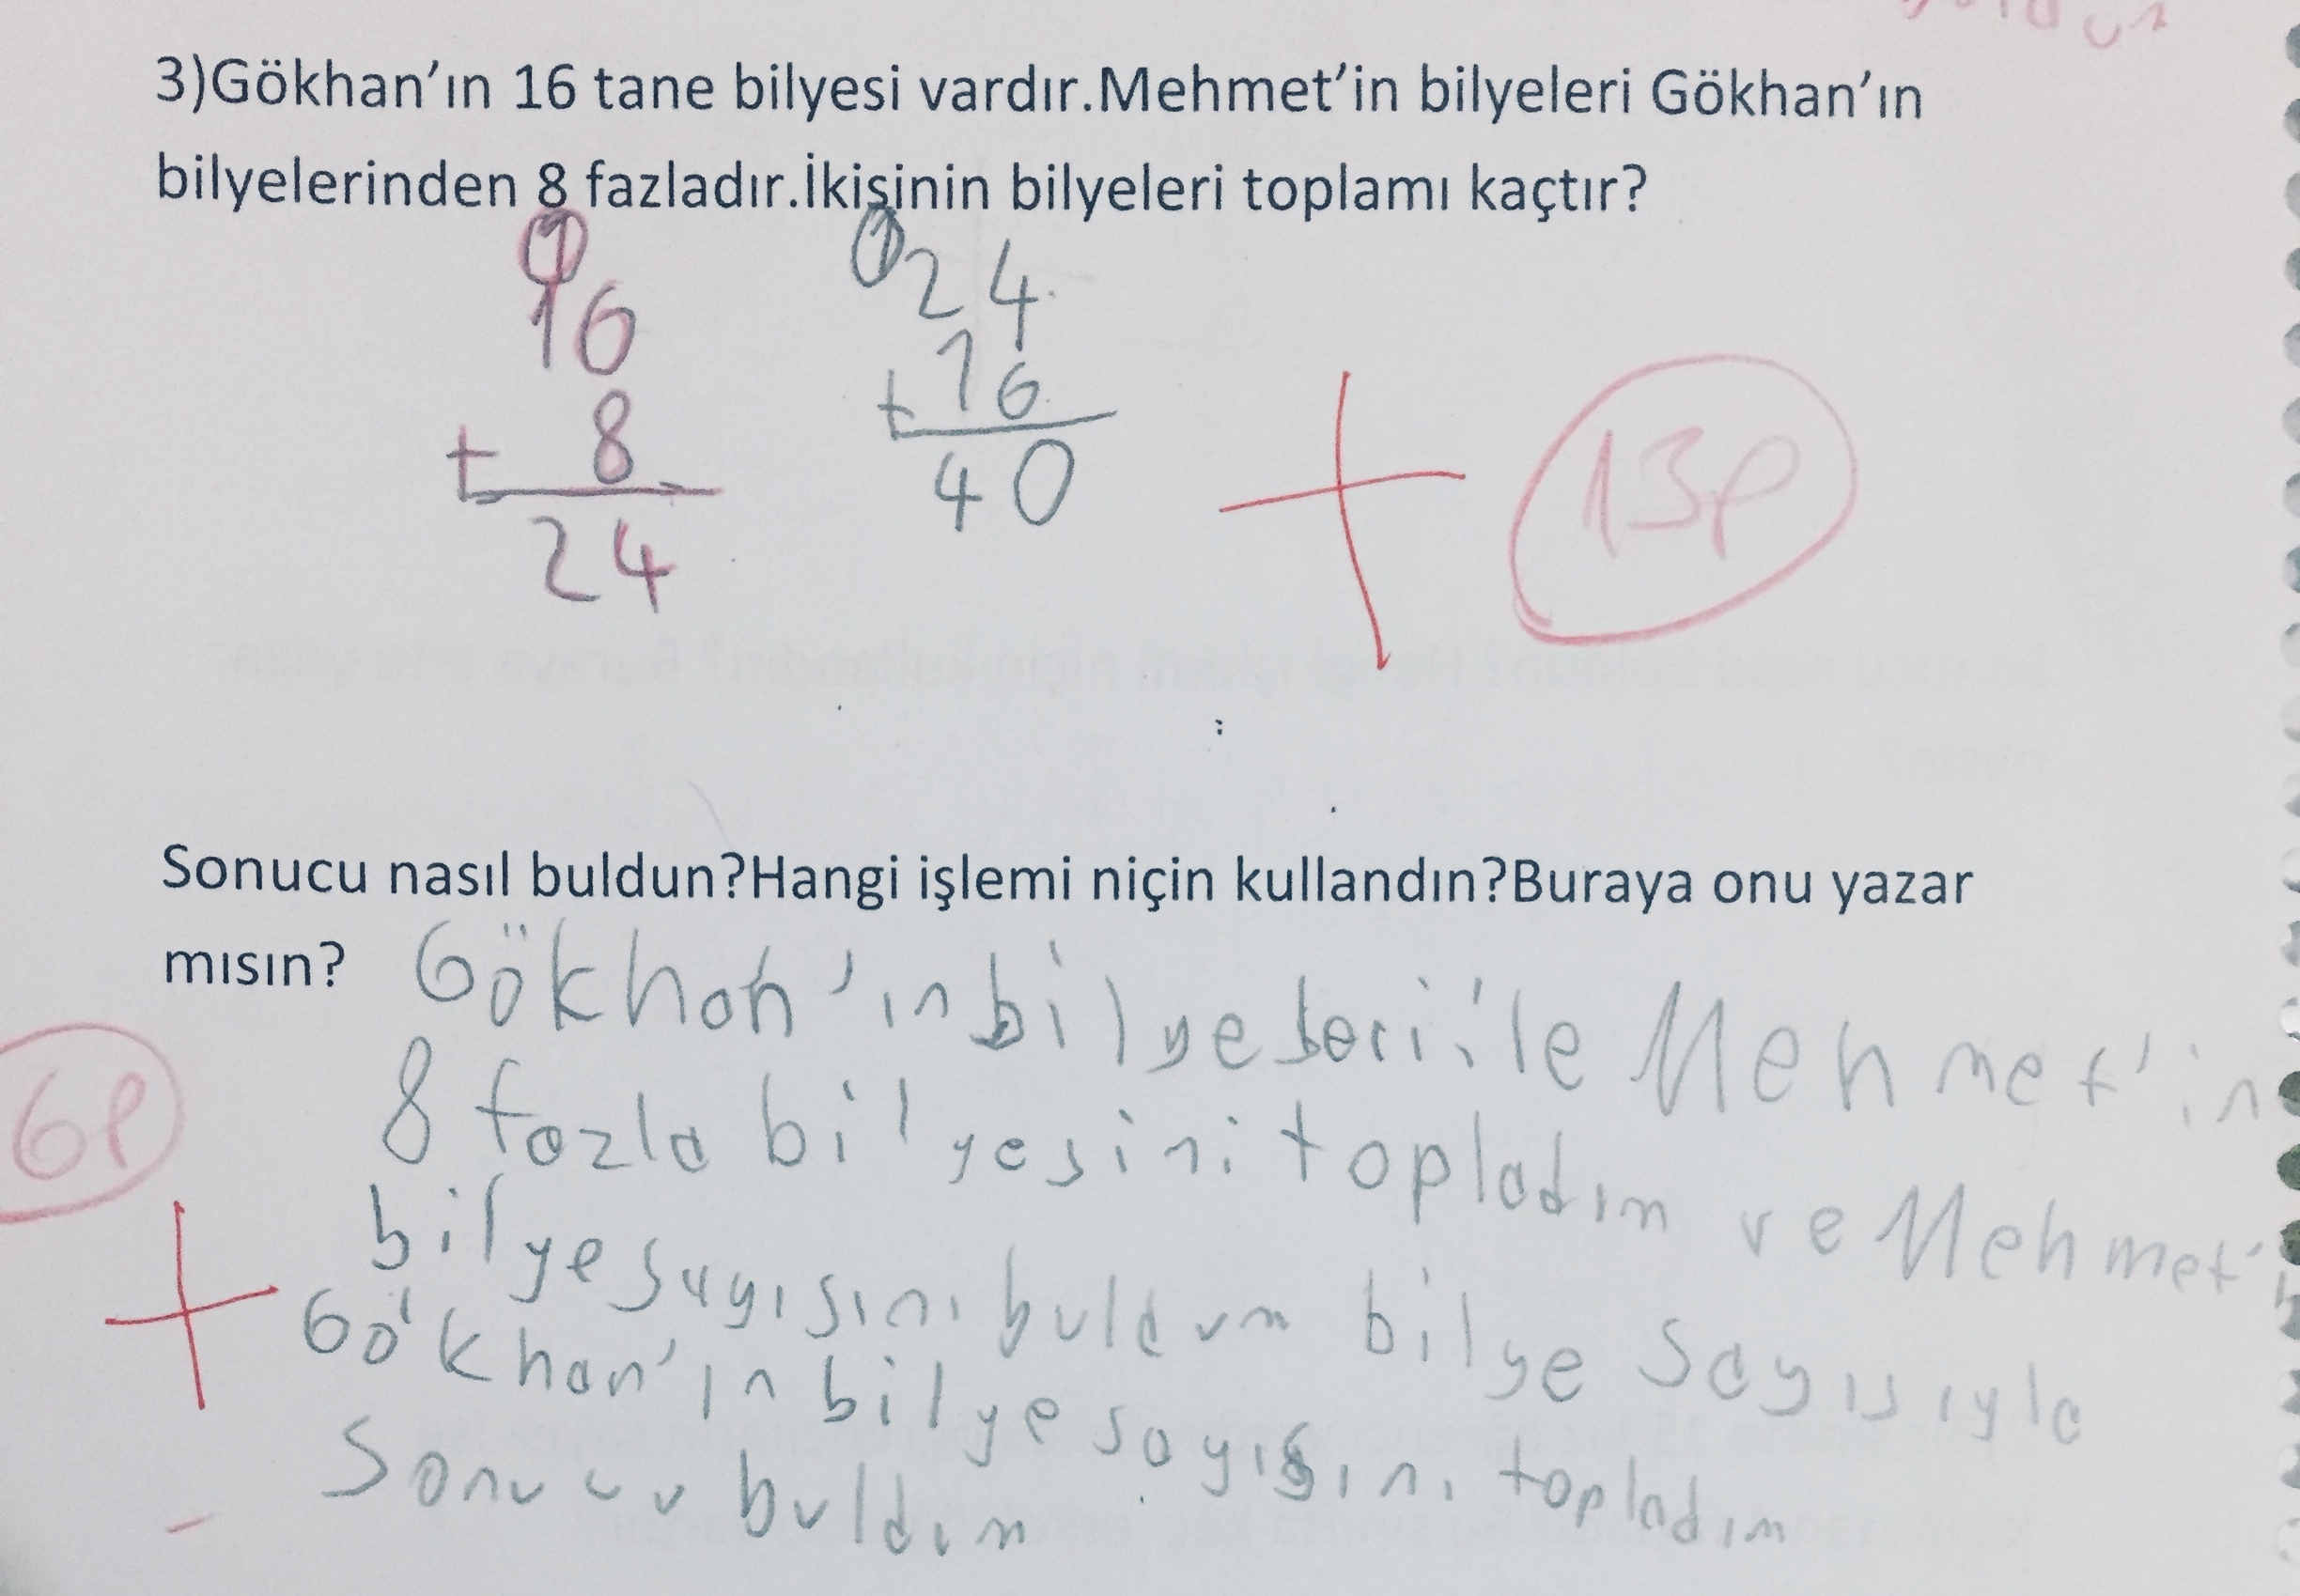 3)Gökhan'ın 16 tane bilyesi vardır.Mehmet'in bilyeleri Gökhan'ın
bilyelerinden 8 fazladır.İkişinin bilyeleri toplamı kaçtır?
1 1
16 24
+ 8 + 16
24 40
+ 13P
Sonucu nasıl buldun?Hangi işlemi niçin kullandın?Buraya onu yazar
mısın? Gökhan'ın bilyeleri ile Mehmet'in
8 fazla bilyesini topladım ve Mehmet'
6P
bilye sayısını buldum bilye sayısıyla
+ Gökhan'ın bilye sayısını topladım
Sonucu buldum